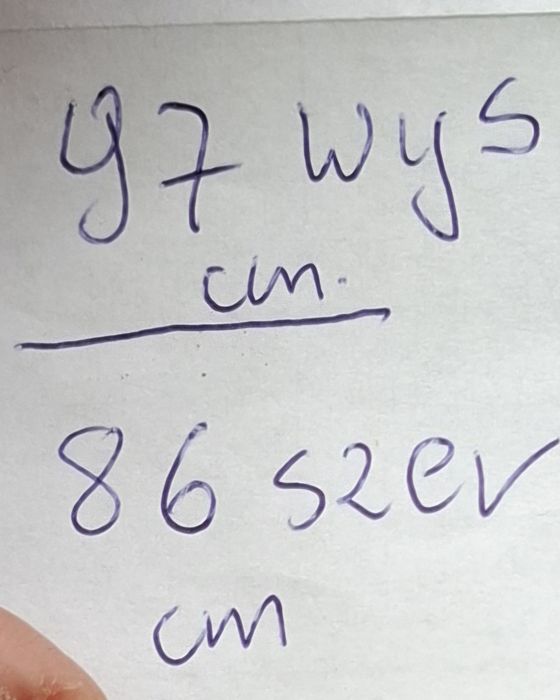 97 wys
cm.
86 szer
cm